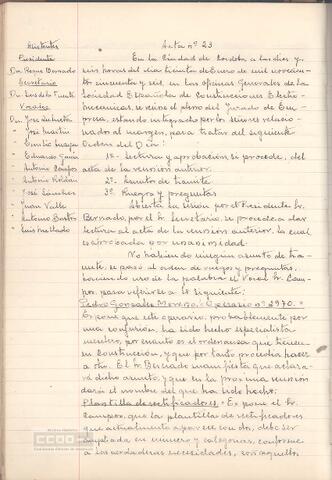 Asistentes
Presidente
Dn. Bernado
Secretario
Dn. Luis de la Fuente
Vocales
Dn. José
" José Martín
" Emilio
" Eduardo
" Antonio Campos
" Antonio Roldán
" José Sánchez
" Juan Valle
" Antonio Bastos
" Luis Mallado
Acta nº 23
En la Ciudad de Córdoba a las diez y
seis horas del día treinta de Enero de mil novecien-
tos cincuenta y seis, en las oficinas Generales de la
Sociedad Española de Construcciones Electro-
mecánicas, se reúne el pleno del Jurado de Em-
presa, estando integrado por los señores relacio-
nados al margen, para tratar del siguiente
Orden del Día:
1º- Lectura y aprobación si procede, del
acta de la reunión anterior.
2º- Asuntos de trámite
3º- Ruegos y preguntas
Abierta la sesión por el Presidente Sr.
Bernado, por el Sr. Secretario, se procede a dar
lectura al acta de la reunión anterior, la cual
es aprobada por unanimidad.
No habiendo ningún asunto de trá-
mite, se pasó al orden de ruegos y preguntas,
tomando uso de la palabra el vocal Sr. Cam-
pos, para referirse a lo siguiente:
Pedro González Moreno.- Operario nº 2970.-
Expone que este operario, probablemente por
una confusión, ha sido hecho especialista
membro, por cuanto es el ordenanza que tienen
en Construcción y que por tanto procedía hacer
a otro. El Sr. Bernado manifiesta que aclara-
rá dicho asunto, y que en la próxima reunión
dará el nombre del que ha sido hecho.
Plantilla de rectificadores.- Expone el Sr.
Campos, que la plantilla de rectificadores
que actualmente aparece con dos, debe ser
ampliada en número y categorías, conforme
a las verdaderas necesidades, con aquellos